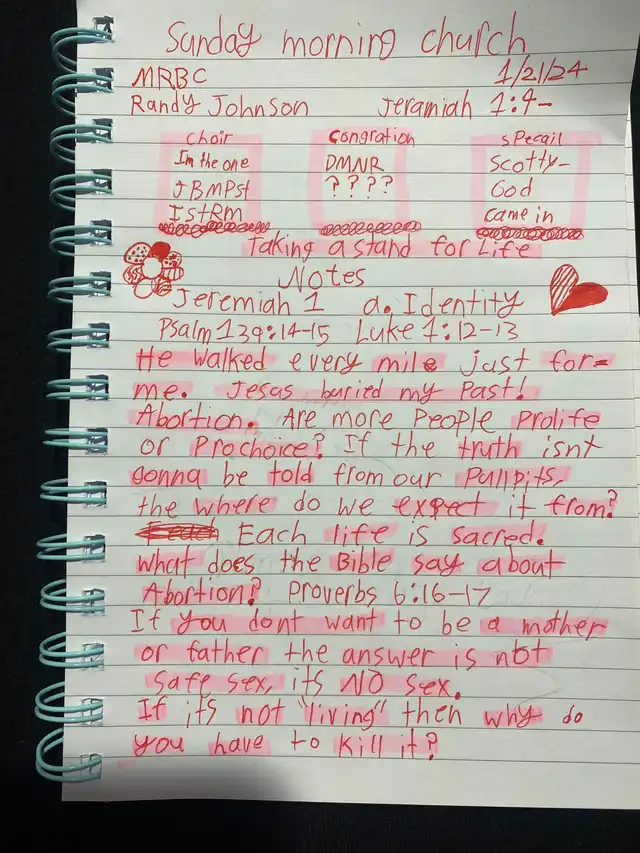 Sunday morning church
MRBC 1/21/24
Randy Johnson Jeramiah 1:4-
Choir Congration Specail
Im the one DMNR Scotty-
JBMPSt ? ? ? ? God
IstRm came in
Taking a stand for Life
Notes
Jeremiah 1 a. Identity
Psalm 139:14-15 Luke 1:12-13
He walked every mile just for-
me. Jesas buried my Past!
Abortion. Are more People Prolife
or Prochoice? If the truth isnt
gonna be told from our Pullpits,
the where do we expect it from?
Each life is sacred.
What does the Bible say about
Abortion? Proverbs 6:16-17
If you dont want to be a mother
or father the answer is not
safe sex, its NO sex.
If its not "living" then why do
you have to Kill it?